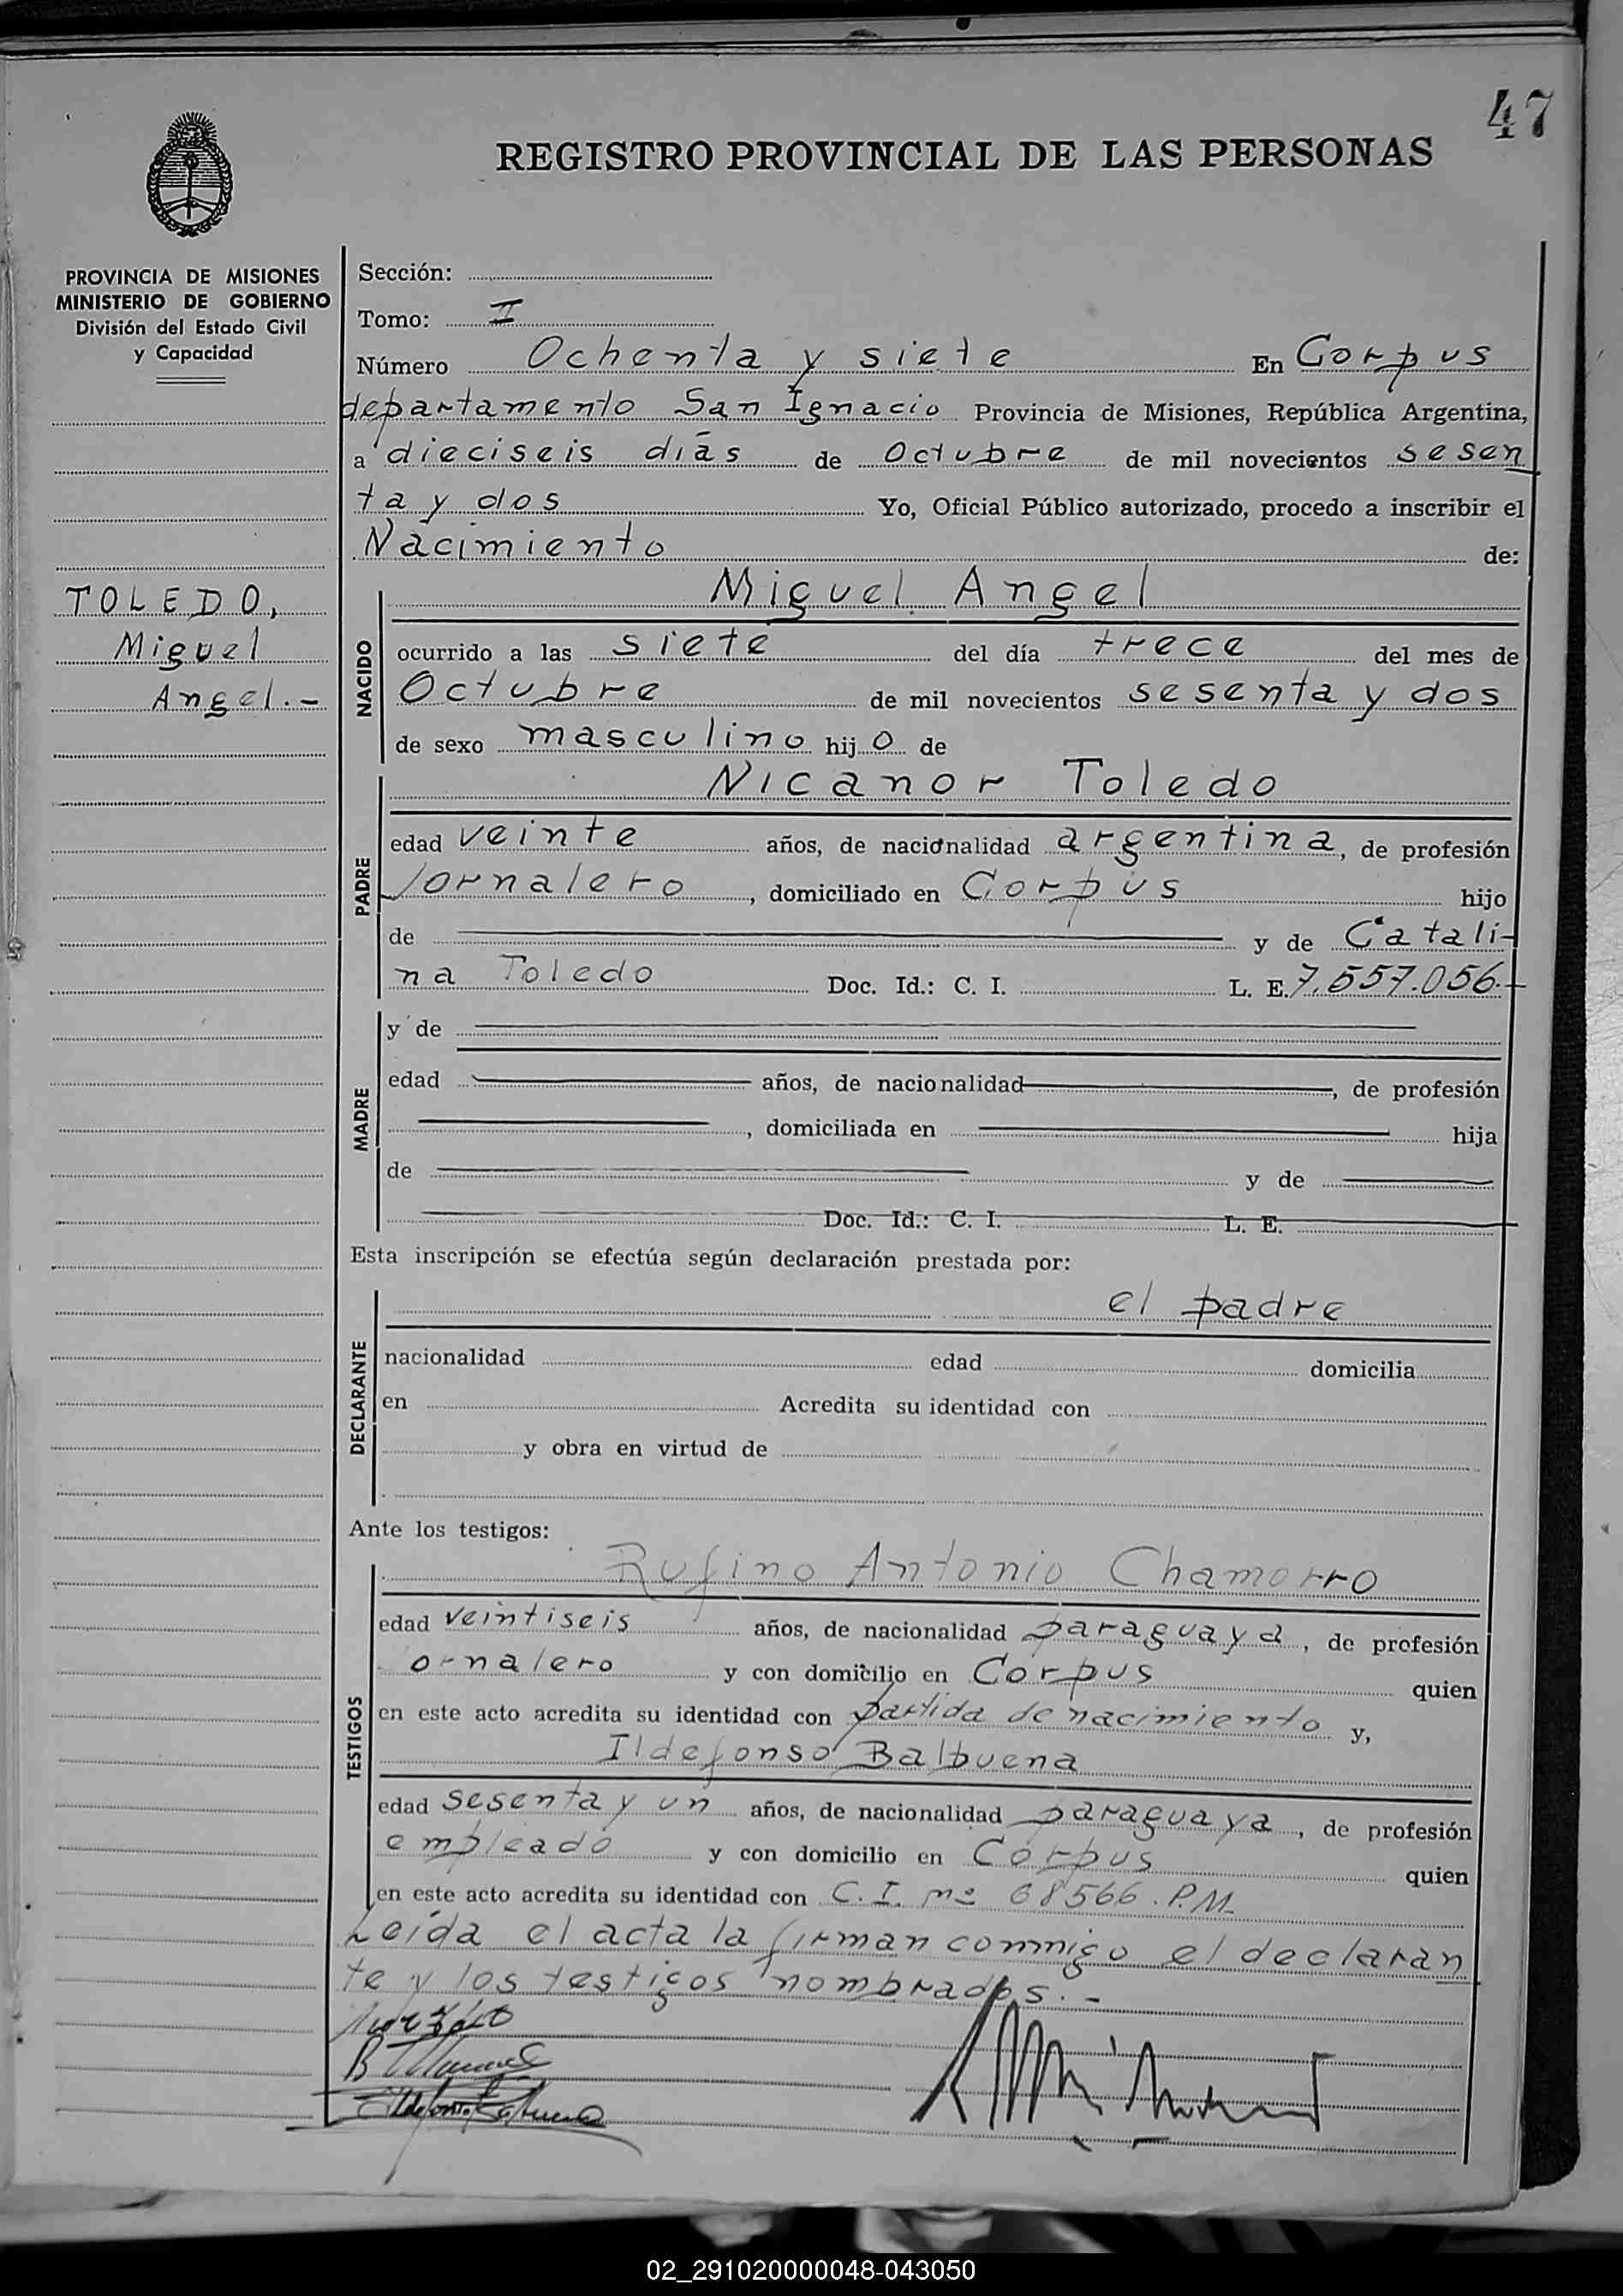 47
REGISTRO PROVINCIAL DE LAS PERSONAS
PROVINCIA DE MISIONES
MINISTERIO DE GOBIERNO
División del Estado Civil
y Capacidad
TOLEDO,
Miguel
Angel.-
Sección:
Tomo: II
Número Ochenta y siete En Corpus
departamento San Ignacio Provincia de Misiones, República Argentina,
a dieciseis días de Octubre de mil novecientos sesen
ta y dos Yo, Oficial Público autorizado, procedo a inscribir el
Nacimiento de:
NACIDO
Miguel Angel
ocurrido a las siete del día trece del mes de
Octubre de mil novecientos sesenta y dos
de sexo masculino hijo de
PADRE
Nicanor Toledo
edad veinte años, de nacionalidad argentina, de profesión
Jornalero, domiciliado en Corpus hijo
de y de Catali-
na Toledo Doc. Id.: C. I. L. E. 7.557.056.-
MADRE
y de
edad años, de nacionalidad, de profesión
, domiciliada en hija
de y de
Doc. Id.: C. I. L. E.
Esta inscripción se efectúa según declaración prestada por:
DECLARANTE
el padre
nacionalidad edad domicilia
en Acredita su identidad con
y obra en virtud de
Ante los testigos:
TESTIGOS
Rufino Antonio Chamorro
edad veintiseis años, de nacionalidad paraguaya, de profesión
ornalero y con domicilio en Corpus quien
en este acto acredita su identidad con partida de nacimiento y,
Ildefonso Balbuena
edad sesenta y un años, de nacionalidad paraguaya, de profesión
empleado y con domicilio en Corpus quien
en este acto acredita su identidad con C.I. nº 68566. P.M.
Leída el acta la firman conmigo el declaran
te y los testigos nombrados.-
Ildefonso Balbuena
02_291020000048-043050